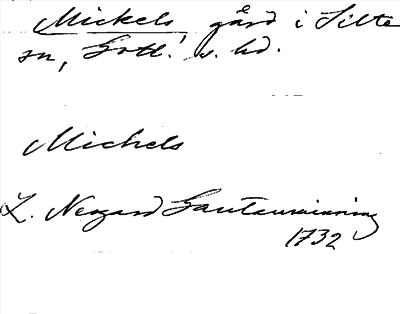 Mickels, gård i Silte
sn, Gotl. s. hd.
Michels
L. Neogard Gautauminning
1732